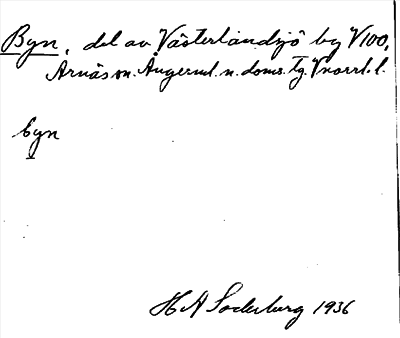 Byn, del av Västerlandsjö by V100,
Arnäs sn. Ångerml. n. doms. tg. Vnorrl. l.
byn
H A Soderburg 1936